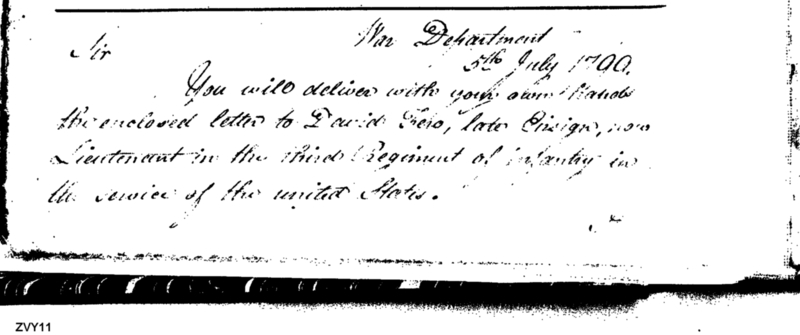 War Department
Sir
5th July 1790.
You will deliver with your own Hands
the enclosed letter to David Zero, late Ensign, now
Lieutenant in the third Regiment of infantry in
the service of the united States.
ZVY11